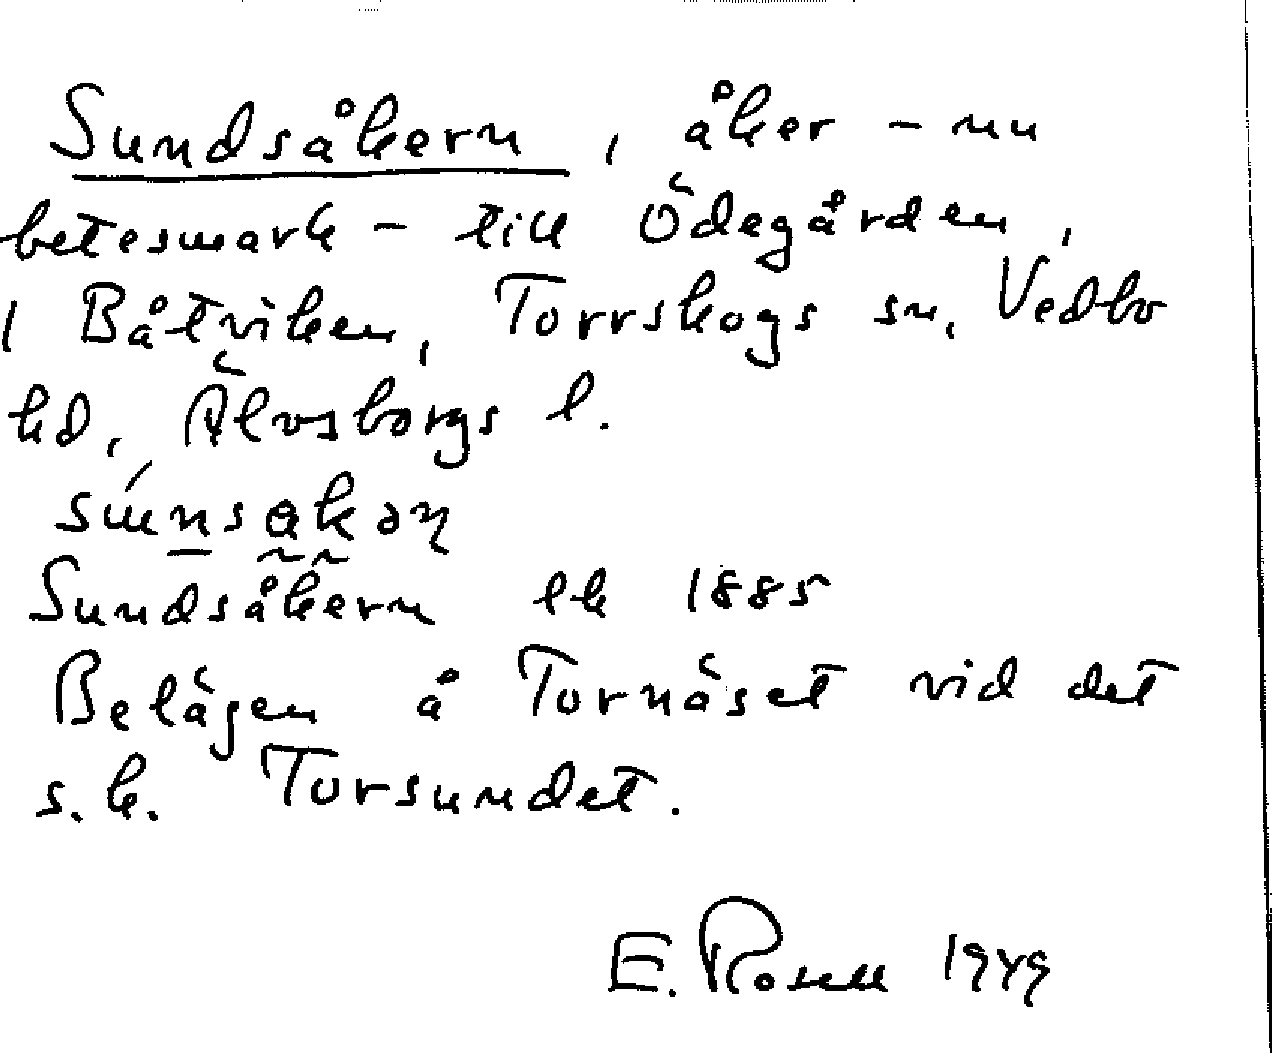 Sundsåkern, åker - nu
betesmark - till Ödegården,
1 Båtviken, Torrskogs sn, Vedbo
hd, Älvsborgs l.
Sundsåkern lk 1885
Belägen å Tornäset vid det
s.k. Torsundet.
E. Rosell 1949